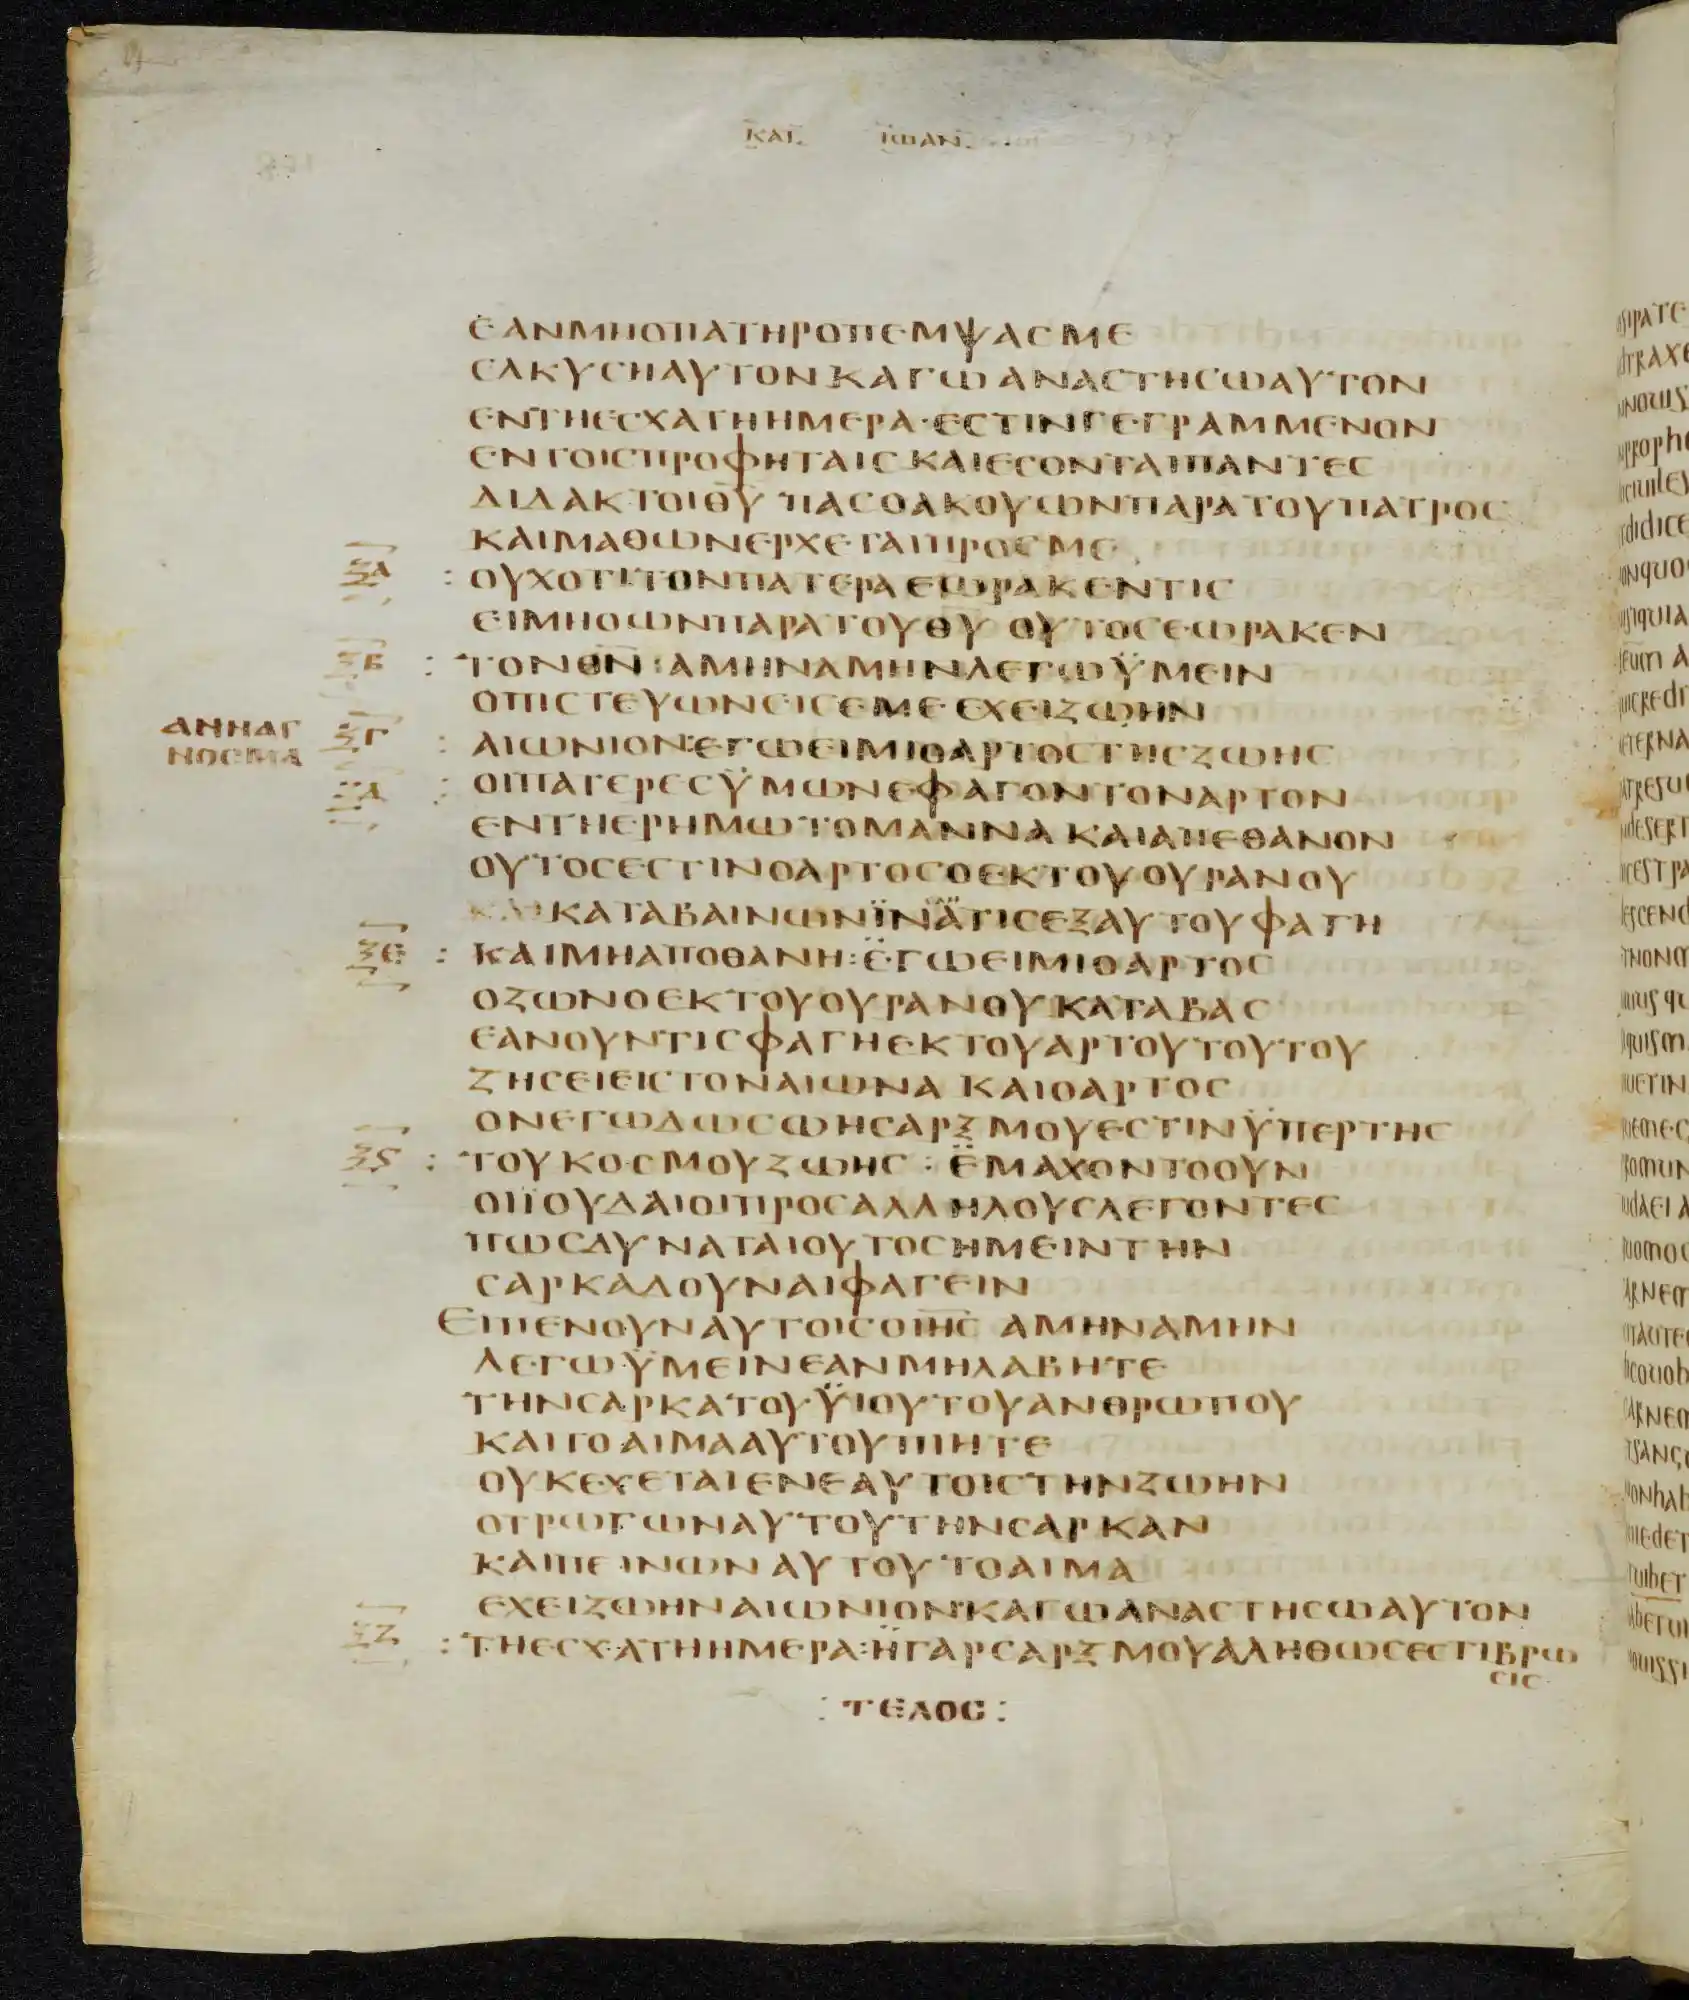 ΚΑΤ ΙΩΑΝ
ΕΑΝΜΗΟΠΑΤΗΡΟΠΕΜΨΑСΜΕ
ΕΛΚΥСΗΑΥΤΟΝΚΑΓΩΑΝΑСΤΗСΩΑΥΤΟΝ
ΕΝΤΗΕСΧΑΤΗΗΜΕΡΑ·ΕСΤΙΝΓΕΓΡΑΜΜΕΝΟΝ
ΕΝΤΟΙСΠΡΟΦΗΤΑΙС ΚΑΙΕСΟΝΤΑΙΠΑΝΤΕС
ΔΙΔΑΚΤΟΙΘΥ ΠΑСΟΑΚΟΥΩΝΠΑΡΑΤΟΥΠΑΤΡΟС
ΚΑΙΜΑΘΩΝΕΡΧΕΤΑΙΠΡΟСΜΕ
ΞΑ : ΟΥΧΟΤΙΤΟΝΠΑΤΕΡΑΕΩΡΑΚΕΝΤΙС
ΕΙΜΗΟΩΝΠΑΡΑΤΟΥΘΥ ΟΥΤΟСΕΩΡΑΚΕΝ
ΞΒ : ΤΟΝΘΝ:ΑΜΗΝΑΜΗΝΛΕΓΩΫΜΕΙΝ
ΟΠΙСΤΕΥΩΝΕΙСΕΜΕ ΕΧΕΙΖΩΗΝ
ΑΝΝΑΓ
ΝΟСΜΑ
ΞΓ : ΑΙΩΝΙΟΝ:ΕΓΩΕΙΜΙΟΑΡΤΟСΤΗСΖΩΗС
ΞΔ : ΟΙΠΑΤΕΡΕСΫΜΩΝΕΦΑΓΟΝΤΟΝΑΡΤΟΝ
ΕΝΤΗΕΡΗΜΩΤΟΜΑΝΝΑΚΑΙΑΠΕΘΑΝΟΝ
ΟΥΤΟСΕСΤΙΝΟΑΡΤΟСΟΕΚΤΟΥΟΥΡΑΝΟΥ
ΚΑΙΚΑΤΑΒΑΙΝΩΝΪΝΑΤΙСΕΞΑΥΤΟΥΦΑΓΗ
ΞΕ : ΚΑΙΜΗΑΠΟΘΑΝΗ:ΕΓΩΕΙΜΙΟΑΡΤΟС
ΟΖΩΝΟΕΚΤΟΥΟΥΡΑΝΟΥΚΑΤΑΒΑС
ΕΑΝΟΥΝΤΙСΦΑΓΗΕΚΤΟΥΑΡΤΟΥΤΟΥΤΟΥ
ΖΗСΕΙΕΙСΤΟΝΑΙΩΝΑ ΚΑΙΟΑΡΤΟС
ΟΝΕΓΩΔΩСΩΗСΑΡΞΜΟΥΕСΤΙΝΫΠΕΡΤΗС
ΞϚ : ΤΟΥΚΟСΜΟΥΖΩΗС : ΕΜΑΧΟΝΤΟΟΥΝ
ΟΙΪΟΥΔΑΙΟΙΠΡΟСΑΛΛΗΛΟΥСΛΕΓΟΝΤΕС
ΠΩСΔΥΝΑΤΑΙΟΥΤΟСΗΜΕΙΝΤΗΝ
СΑΡΚΑΔΟΥΝΑΙΦΑΓΕΙΝ
ΕΙΠΕΝΟΥΝΑΥΤΟΙСΟΙΗС ΑΜΗΝΑΜΗΝ
ΛΕΓΩΫΜΕΙΝΕΑΝΜΗΛΑΒΗΤΕ
ΤΗΝСΑΡΚΑΤΟΥΫΙΟΥΤΟΥΑΝΘΡΩΠΟΥ
ΚΑΙΤΟΑΙΜΑΑΥΤΟΥΠΙΗΤΕ
ΟΥΚΕΧΕΤΑΙΕΝΕΑΥΤΟΙСΤΗΝΖΩΗΝ
ΟΤΡΩΓΩΝΑΥΤΟΥΤΗΝСΑΡΚΑΝ
ΚΑΙΠΕΙΝΩΝΑΥΤΟΥΤΟΑΙΜΑ
ΕΧΕΙΖΩΗΝΑΙΩΝΙΟΝ·ΚΑΓΩΑΝΑСΤΗСΩΑΥΤΟΝ
ΞΖ : ΤΗΕСΧΑΤΗΗΜΕΡΑ:ΗΓΑΡСΑΡΞΜΟΥΑΛΗΘΩСΕСΤΙΒΡΩ
СΙС
: ΤΕΛΟС :